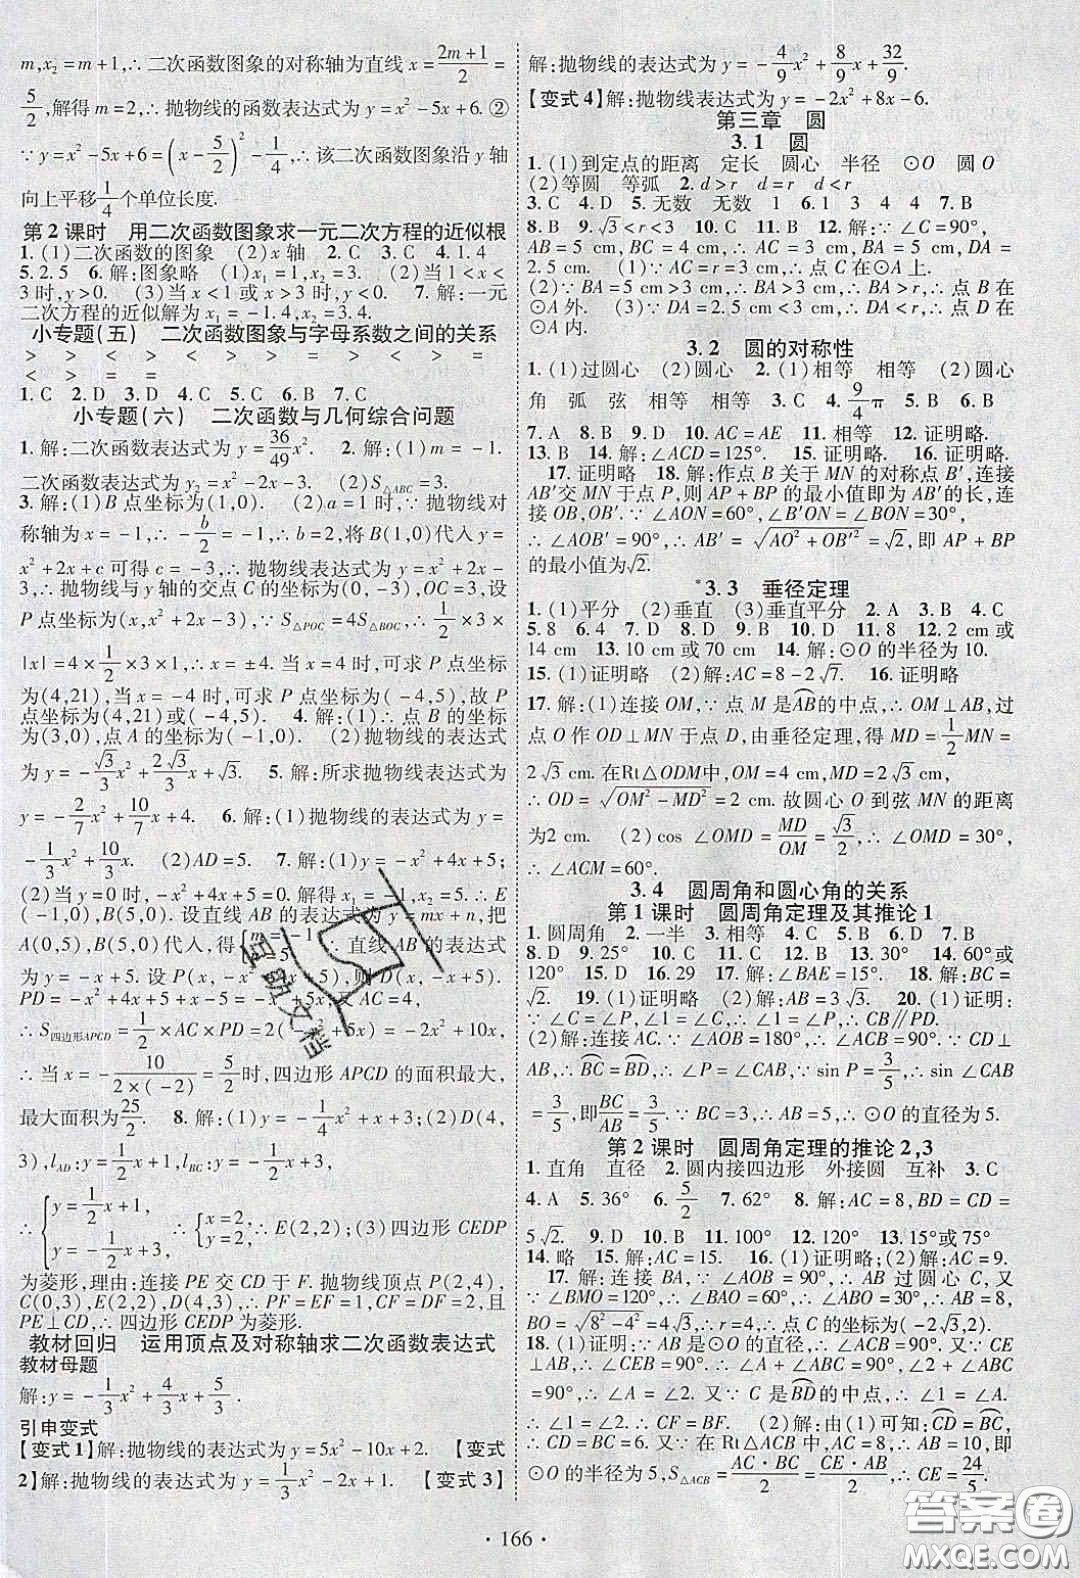 m,x₂=m+1,∴二次函数图象的对称轴为直线 x=(2m+1)/2=
5/2,解得 m=2,∴抛物线的函数表达式为 y=x²-5x+6.②
∵y=x²-5x+6=(x-5/2)²-1/4,∴该二次函数图象沿 y 轴
向上平移1/4个单位长度.
第2课时 用二次函数图象求一元二次方程的近似根
1.(1)二次函数的图象 (2)x 轴 2.C 3.C 4.1.4
5.2.5 6.解:图象略 (1)x₁=1,x₂=3. (2)当 1<x<
3 时,y>0. (3)当 x<1 或 x>3 时,y<0. 7.解:一元
二次方程的近似解为 x₁=-1.4,x₂=3.4.
小专题(五) 二次函数图象与字母系数之间的关系
> > > > < > < > < >
< > = =
1.C 2.D 3.D 4.C 5.C 6.B 7.C
小专题(六) 二次函数与几何综合问题
1.解:二次函数表达式为 y=36/49x². 2.解:(1)m=-1.
二次函数表达式为 y₂=x²-2x-3. (2)S△ABC=3.
3.解:(1)B 点坐标为(1,0). (2)a=1 时,∵抛物线对
称轴为 x=-1,∴-b/2=-1,∴b=2,将 B(1,0)代入 y=
x²+2x+c 可得 c=-3,∴抛物线表达式为 y=x²+2x-
3,∴抛物线与 y 轴的交点 C 的坐标为(0,-3),OC=3.设
P 点坐标为(x,x²+2x-3),∵S△POC=4S△BOC,∴1/2×3×
|x|=4×1/2×3×1,∴x=±4.当 x=4 时,可求 P 点坐标
为(4,21),当 x=-4 时,可求 P 点坐标为(-4,5),故 P
点坐标为(4,21)或(-4,5). 4.解:(1)∴点 B 的坐标
为(3,0),点 A 的坐标为(-1,0). (2)抛物线的表达式
为 y=-√3/3x²+2√3/3x+√3. 5.解:所求抛物线表达式为
y=-2/7x²+10/7x+4. 6.解:(1)抛物线的表达式为 y=
-1/3x²+10/3x. (2)AD=5. 7.解:(1)y=-x²+4x+5;
(2)当 y=0 时,-x²+4x+5=0,∴x₁=-1,x₂=5,∴E
(-1,0),B(5,0).设直线 AB 的表达式为 y=mx+n,∵
A(0,5),B(5,0)代入,得 m=-1 =5 ∴直线 AB 的表达式
为 y=-x+5.设 P(x,-x²+4x+5),∴D(x,-x+5).
PD=-x²+4x+5+x-5=-x²+5x,又∵AC=4,
∴S四边形APCD=1/2×AC×PD=2(-x²+5x)=-2x²+10x,
∴当 x=-10/(2×(-2))=5/2时,四边形 APCD 的面积最大,
最大面积为25/2. 8.解:(1)y=-1/4x²+x+3;(2)D(4,
3),lAD:y=1/2x+1,lBC:y=-1/2x+3,
∴{y=1/2x+1, y=-1/2x+3, ∴{x=2, y=2, ∴E(2,2);(3)四边形 CEDP
为菱形,理由:连接 PE 交 CD 于 F.抛物线顶点 P(2,4),
C(0,3),E(2,2),D(4,3),∴PF=EF=1,CF=DF=2,且
PE⊥CD,∴四边形 CEDP 为菱形.
教材回归 运用顶点及对称轴求二次函数表达式
教材母题
解:y=-1/3x²+4/3x+5/3.
引申变式
【变式1】解:抛物线的表达式为 y=5x²-10x+2. 【变式
2】解:抛物线的表达式为 y=1/3x²-2x+1. 【变式3】
解:抛物线的表达式为 y=-4/9x²+8/9x+32/9.
【变式4】解:抛物线表达式为 y=-2x²+8x-6.
第三章 圆
3.1 圆
1.(1)到定点的距离 定长 圆心 半径 ⊙O 圆O
(2)等圆 等弧 2.d>r d=r d<r
3.C 4.D 5.无数 无数 1 6.1 3 4 7.B
8.B 9.√3<r<3 10.解:(1)连接 CA,∵∠C=90°,
AB=5 cm,BC=4 cm,∴AC=3 cm,BA=5 cm,DA=
2.5 cm. (1)∵AC=r=3 cm,∴点 C 在⊙A 上.
(2)∵BA=5 cm>3 cm,∴BA>3 cm,∴BA>r,∴点 B 在
⊙A 外. (3)∵DA=2.5 cm<3 cm,∴DA<r,∴点 D 在
⊙A 内.
3.2 圆的对称性
1.(1)过圆心 (2)圆心 2.(1)相等 相等 (2)圆心
角 弧 弦 相等 相等 3.C 4.C 5.B 6.9/4π
7.A 8.B 9.D 10.AC=AE 11.相等 12.证明略.
13.B 14.解:∠ACD=125°. 15.证明略. 16.证明略.
17.证明略 18.解:作点 B 关于 MN 的对称点 B′,连接
AB′交 MN 于点 P,则 AP+BP 的最小值即为 AB′的长,连
接 OB,OB′.∵∠AON=60°,∠B′ON=∠BON=30°,
∴∠AOB′=90°,∴AB′=√(AO²+OB′²)=√2,即 AP+BP
的最小值为√2.
*3.3 垂径定理
1.(1)平分 (2)垂直 (3)垂直平分 2.A 3.B 4.C
5.8 6.4 7.D 8.D 9.B 10.D 11.8 12.2 cm 或
14 cm 13.10 cm 或 70 cm 14.解:⊙O 的半径为 10.
15.(1)证明略 (2)解:AC=8-2√7. 16.证明略
17.解:(1)连接 OM,∵点 M 是AB的中点,∴OM⊥AB,过
点 O 作 OD⊥MN 于点 D,由垂径定理,得 MD=1/2MN=
2√3 cm.在Rt△ODM中,OM=4 cm,MD=2√3 cm,
∴OD=√(OM²-MD²)=2 cm.故圆心 O 到弦 MN 的距离
为2 cm. (2)cos ∠OMD=MD/OM=√3/2,∴∠OMD=30°,
∴∠ACM=60°.
3.4 圆周角和圆心角的关系
第1课时 圆周角定理及其推论1
1.圆周角 2.一半 3.相等 4.C 5.B 6.D 7.B
8.D 9.25° 10.D 11.C 12.B 13.30° 14.60°或
120° 15.D 16.29° 17.解:∠BAE=15°. 18.解:BC=
√2. 19.(1)证明略 (2)解:AB=3√3. 20.(1)证明:
∵∠C=∠P,又∵∠1=∠C,∴∠1=∠P,∴CB∥PD.
(2)解:连接 AC.∵AB 为⊙O 的直径,∴∠ACB=90°.∵CD⊥
AB,∴BC=BD,∴∠P=∠CAB,∵sin P=3/5,∴sin ∠CAB
=3/5,即BC/AB=3/5.∵BC=3,∴AB=5,∴⊙O 的直径为 5.
第2课时 圆周角定理的推论2,3
1.直角 直径 2.圆内接四边形 外接圆 互补 3.C
4.A 5.36° 6.5/2 7.62° 8.解:AC=8,BD=CD=
5√2. 9.D 10.B 11.100° 12.110° 13.15°或75°
14.略 15.解:AC=15. 16.(1)证明略;(2)解:AC=9.
17.解:连接 BA,∵∠AOB=90°,∴AB 过圆心 C,又
∵∠BMO=120°,∴∠BAO=60°,∴∠ABO=30°,∴AB=8,
BO=√(8²-4²)=4√3,∴点 C 的坐标为(-2√3,2).
18.(1)证明:∵AB 是⊙O 的直径,∴∠ACB=90°,又∵CE
⊥AB,∴∠CEB=90°,∴∠2=90°-∠ABC,∠A=90°-
∠ABC,∴∠A=∠2.又∵C 是BD的中点,∴∠1=∠A.
∴∠1=∠2.∴CF=BF. (2)解:由(1)可知:CD=BC,
∴CD=BC=6.又∵在 Rt△ACB中,AC=8,∴AB=10,即
⊙O 的半径为 5,S△ACB=AC·BC/2=CE·AB/2,∴CE=24/5.
· 166 ·
互助文档
答案圈
MXQE.COM